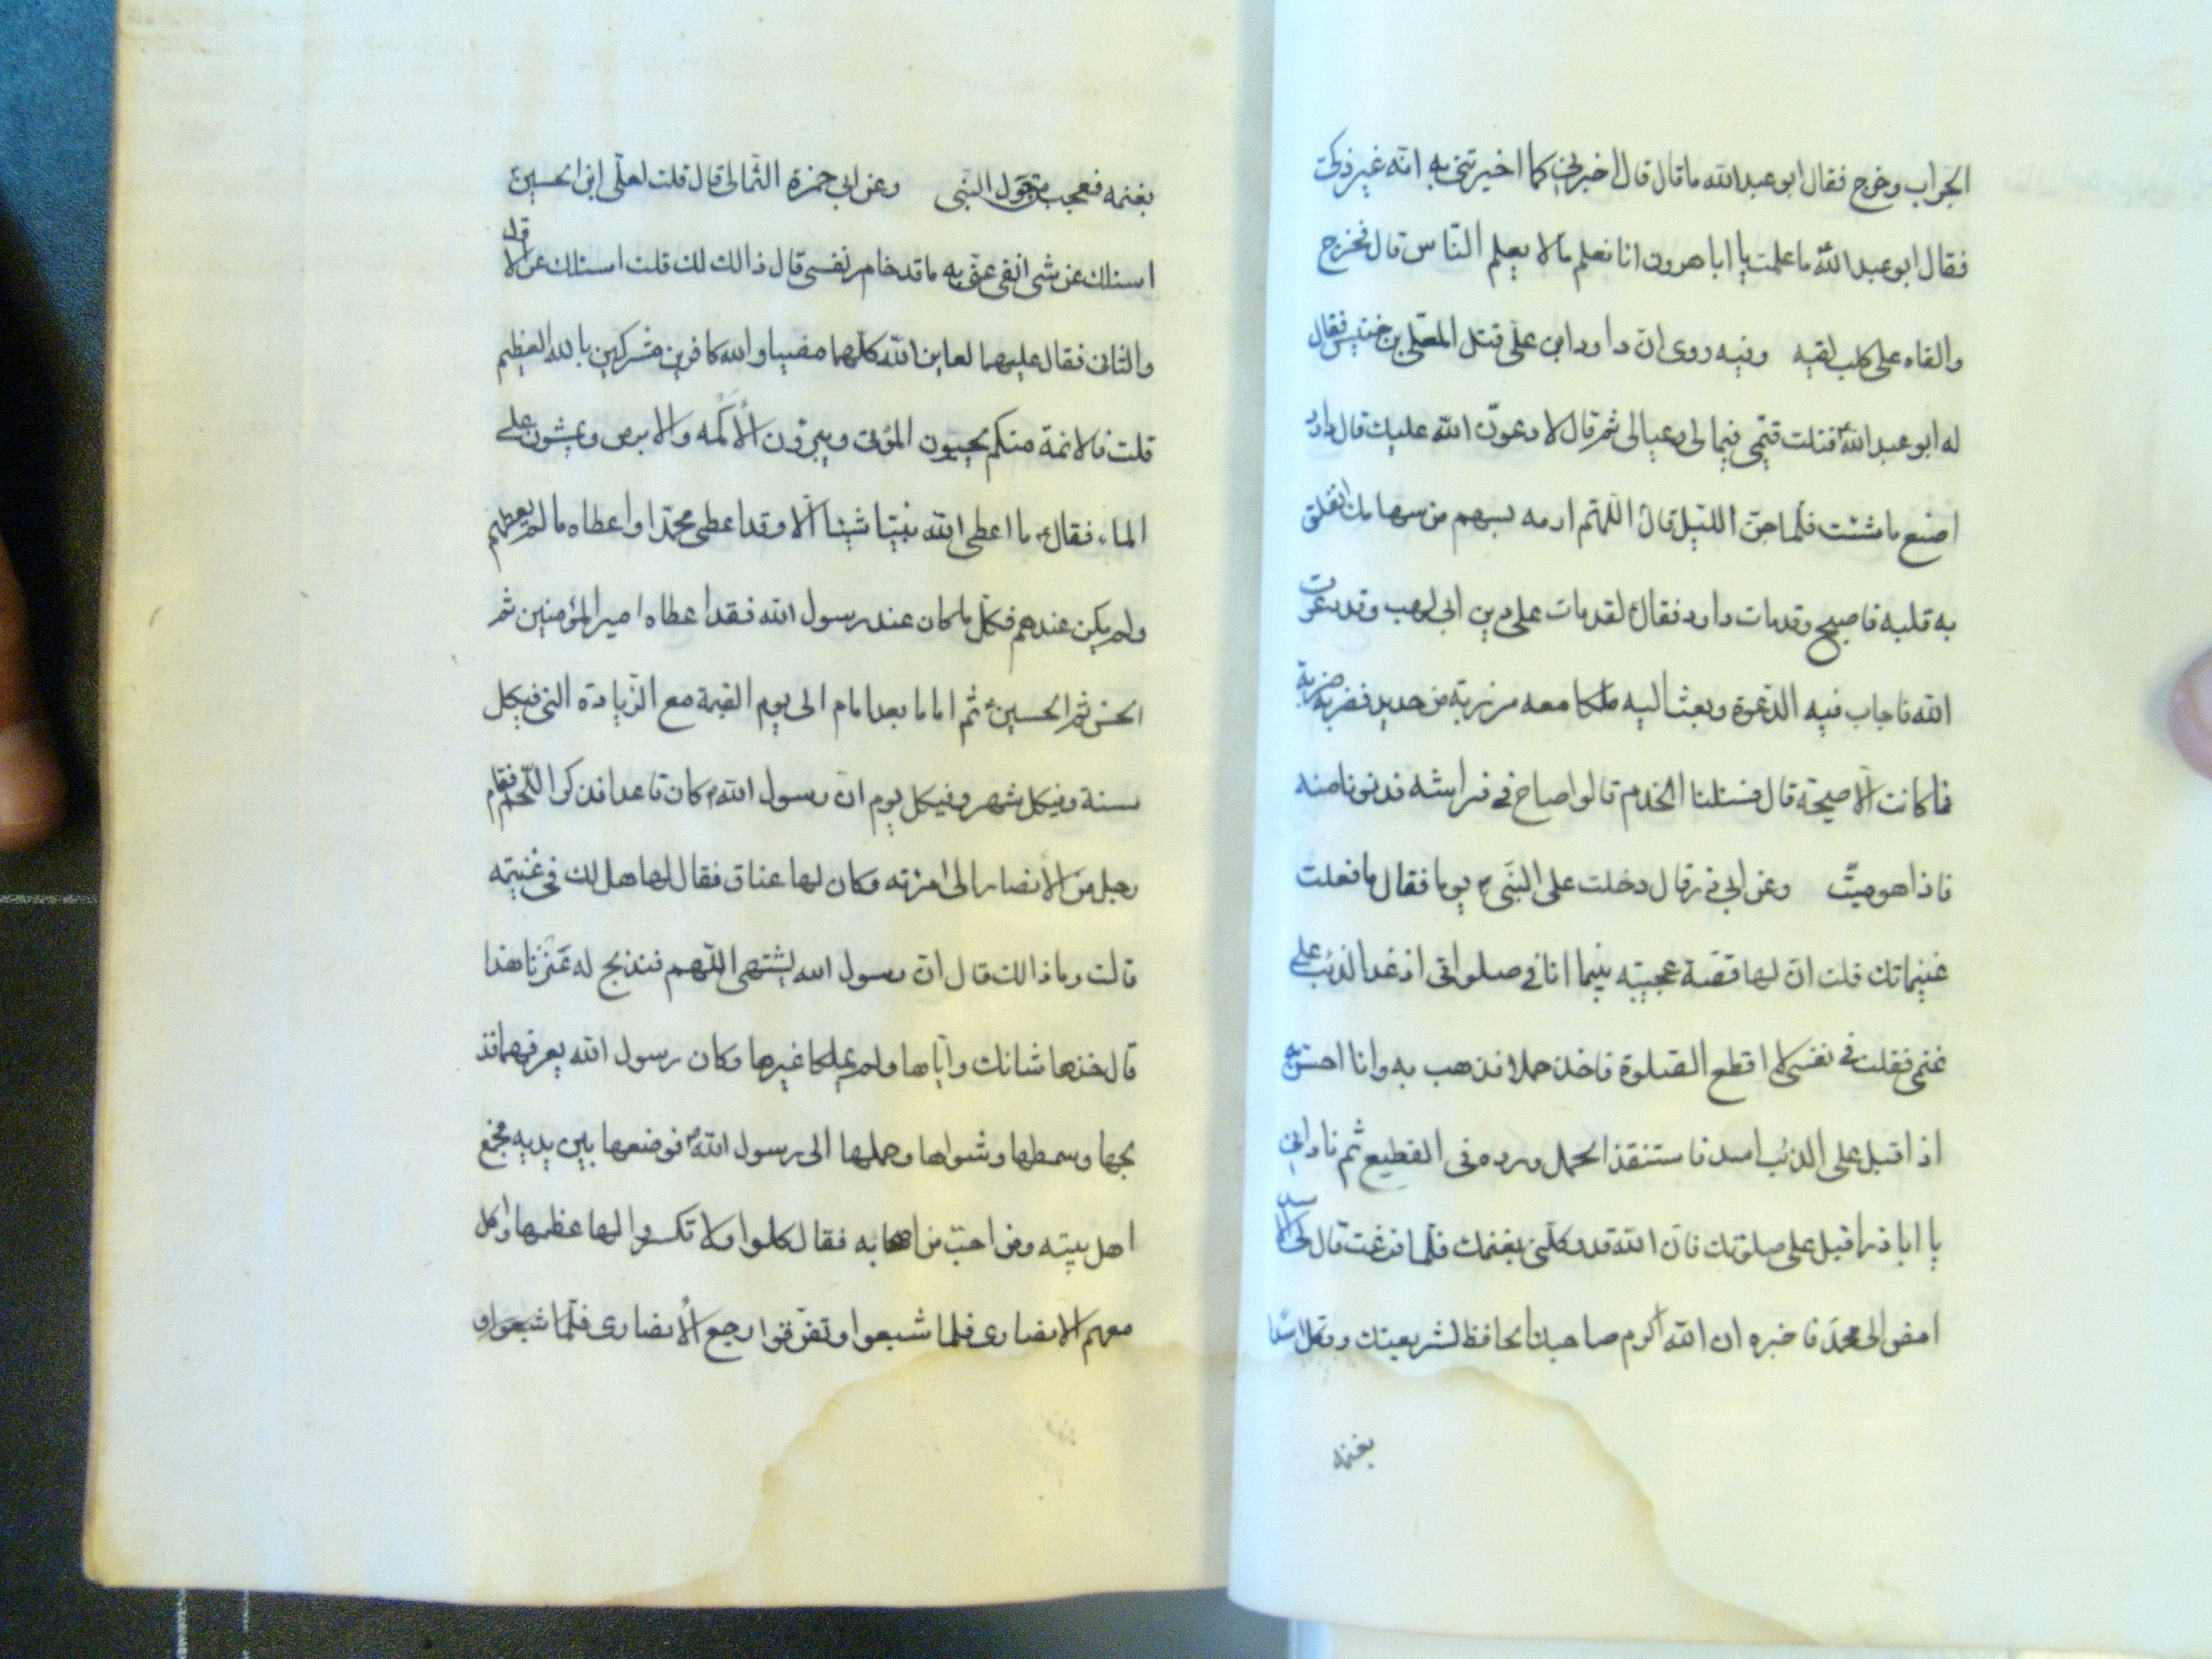 الجراب وخرج فقال ابو عبد الله ما قال قال اخبرنى كما اخبرتنى به انه غير ذكى
فقال ابو عبد الله ما علمت يا ابا هرون انا نعلم ما لا يعلم الناس قال فخرج
والقاه على كلب لقيه وفيه روى ان داود ابن على قتل المعلى بن خنيس فقال
له ابو عبد الله قتلت قيمى فيما لى وعيالى ثم قال لادعون الله عليك قال داود
اصنع ما شئت فلما جن الليل قال اللهم ارمه بسهم من سهامك انفلق
به قلبه فاصبح وقد مات داود فقال لقد مات على دين ابى لهب وقد دعوت
الله فاجاب فيه الدعوة وبعث اليه ملكا معه مرزبة من حديد فضربه ضربة
فما كانت الا صيحة قال فسئلنا الخدم قالوا صاح فى فراشه فدنونا منه
فاذا هو ميت وعن ابى ذر قال دخلت على النبى يوما فقال ما فعلت
غنيماتك قلت ان لها قصة عجيبة بينما انا فى صلواتى اذ غدا الذئب على
غنمى فقلت فى نفسى لا اقطع الصلوة فاخذ حملا فذهب به وانا احس به
اذ اقبل على الذئب اسد فاستنقذ الحمل ورده فى القطيع ثم نادانى
يا ابا ذر اقبل على صلوتك فان الله قد وكلنى بغنمك فلما فرغت قال لى الاسد
امض الى محمد فاخبره ان الله اكرم صاحبك الحافظ لشريعتك ووكل اسدا
بغنمه
بغنمه فعجب من حول النبى وعن ابى حمزة الثمالى قال قلت لعلى ابن الحسين
اسئلك عن شى انفى عنى به ما قد خامر نفسى قال ذالك لك قلت اسئلك عن الاول
والثانى فقال عليهما لعاين الله كلها مضيا والله كافرين مشركين بالله العظيم
قلت فالائمة منكم يحيون الموتى ويبرؤن الاكمه والابرص ويمشون على
الماء فقال ما اعطى الله نبيا شيئا الا وقد اعطى محمدا واعطاه ما لم يعطهم
ولم يكن عندهم فكل ما كان عند رسول الله فقد اعطاه امير المؤمنين ثم
الحسن ثم الحسين ثم اماما بعد امام الى يوم القيمة مع الزيادة التى فيكل
سنة وفيكل شهر وفيكل يوم ان رسول الله كان قاعدا فذكر اللحم فقام
رجل من الأنصار الى امرئته وكان لها عناق فقال لها هل لك فى غنيمه
قالت وما ذالك قال ان رسول الله يشتهى اللحم فنذبح له عنزنا هذا
قال خذها شانك واياها ولم يملكا غيرها وكان رسول الله يعرفهما فذ
بحها وسمطها وشواها وحملها الى رسول الله فوضعها بين يديه فجمع
اهل بيته ومن احب من اصحابه فقال كلوا ولا تكسروا لها عظمها واكل
معهم الانصارى فلما شبعوا وتفرقوا رجع الأنصارى فلما شبعوا و